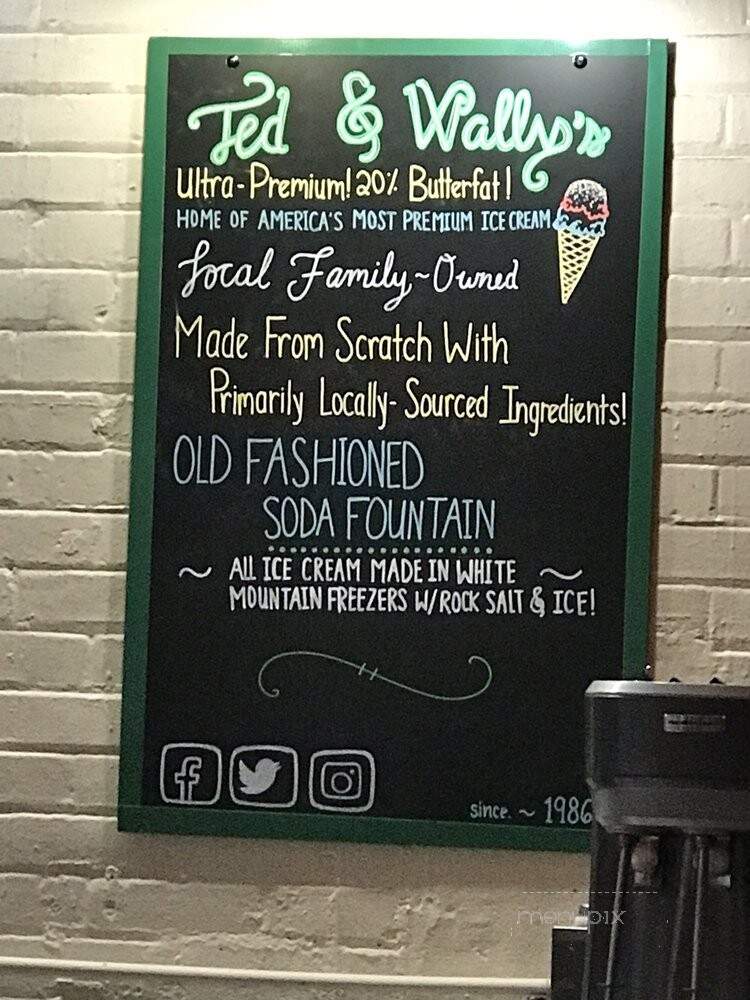 Ted & Wally's
Ultra-Premium! 20% Butterfat!
HOME OF AMERICA'S MOST PREMIUM ICE CREAM
Local Family~Owned
Made From Scratch With
Primarily Locally-Sourced Ingredients!
OLD FASHIONED
SODA FOUNTAIN
~ All ICE CREAM MADE IN WHITE ~
MOUNTAIN FREEZERS W/ROCK SALT & ICE!
since. ~ 1986
menupix